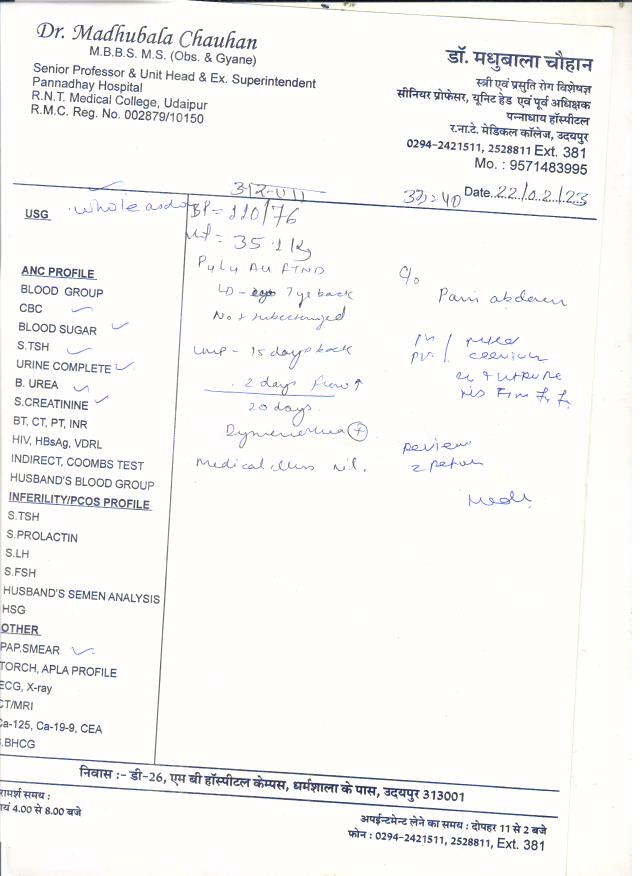 Dr. Madhubala Chauhan
M.B.B.S. M.S. (Obs. & Gyane)
Senior Professor & Unit Head & Ex. Superintendent
Pannadhay Hospital
R.N.T. Medical College, Udaipur
R.M.C. Reg. No. 002879/10150
डॉ. मधुबाला चौहान
स्त्री एवं प्रसुति रोग विशेषज्ञ
सीनियर प्रोफेसर, यूनिट हेड एवं पूर्व अधिक्षक
पन्नाधाय हॉस्पीटल
र.ना.टे. मेडिकल कॉलेज, उदयपुर
0294-2421511, 2528811 Ext. 381
Mo. : 9571483995
Date 22/02/23
USG whole
BP = 110/76
= 35.1 kg
ANC PROFILE
BLOOD GROUP
CBC
BLOOD SUGAR
S.TSH
URINE COMPLETE
B. UREA
S.CREATININE
BT, CT, PT, INR
HIV, HBsAg, VDRL
INDIRECT, COOMBS TEST
HUSBAND'S BLOOD GROUP
INFERILITY/PCOS PROFILE
S.TSH
S.PROLACTIN
S.LH
S.FSH
HUSBAND'S SEMEN ANALYSIS
HSG
OTHER
PAP.SMEAR
TORCH, APLA PROFILE
ECG, X-ray
CT/MRI
Ca-125, Ca-19-9, CEA
.BHCG
All FTND
LD - 7 yr back
LMP - 15 days back
2 days flow ↑
20 days
Medical illness nil.
c/o
Pain abdomen
review
निवास :- डी-26, एम बी हॉस्पीटल केम्पस, धर्मशाला के पास, उदयपुर 313001
रामर्श समय :
ायं 4.00 से 8.00 बजे
अपईन्टमेन्ट लेने का समय : दोपहर 11 से 2 बजे
फोन : 0294-2421511, 2528811, Ext. 381